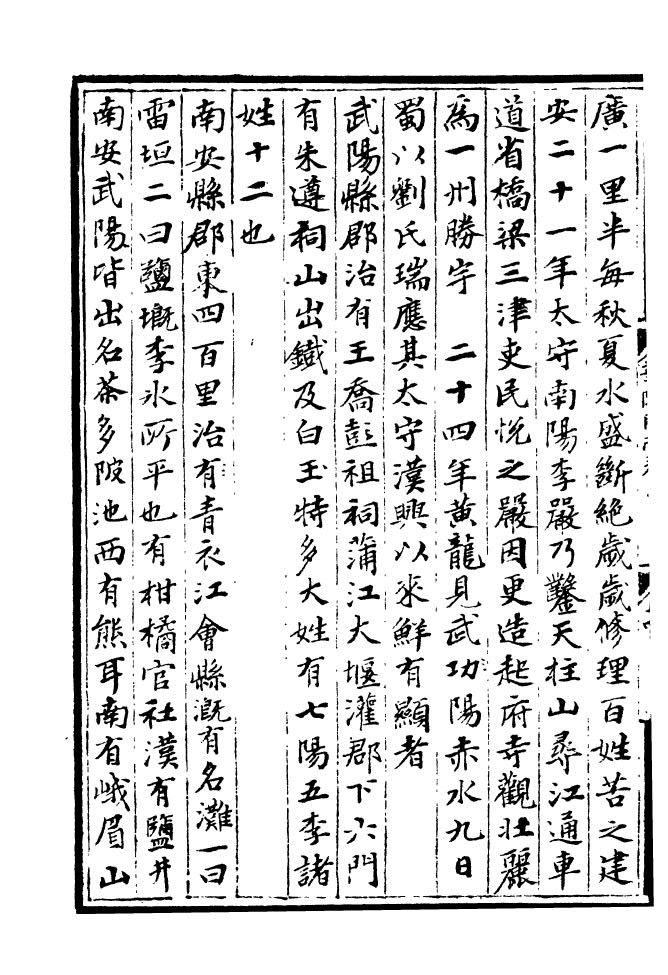 廣一里半每秋夏水盛斷絶歲歲修理百姓苦之建
安二十一年太守南陽李嚴乃鑿天柱山㝷江通車
道省橋梁三津吏民悅之嚴因更造起府寺觀壯麗
爲一州勝宇　二十四年黄龍見武功陽赤水九日
蜀以劉氏瑞應其太守漢興以來鮮有顯者
武陽縣郡治有王喬彭祖祠蒲江大堰灌郡下六門
有朱遵祠山出鐵及白玉特多大姓有七陽五李諸
姓十二也
南安縣郡東四百里治有青衣江會縣溉有名灘一曰
雷垣二曰鹽溉李氷所平也有柑橘官社漢有鹽井
南安武陽皆出名茶多陂池西有熊耳南有峨眉山